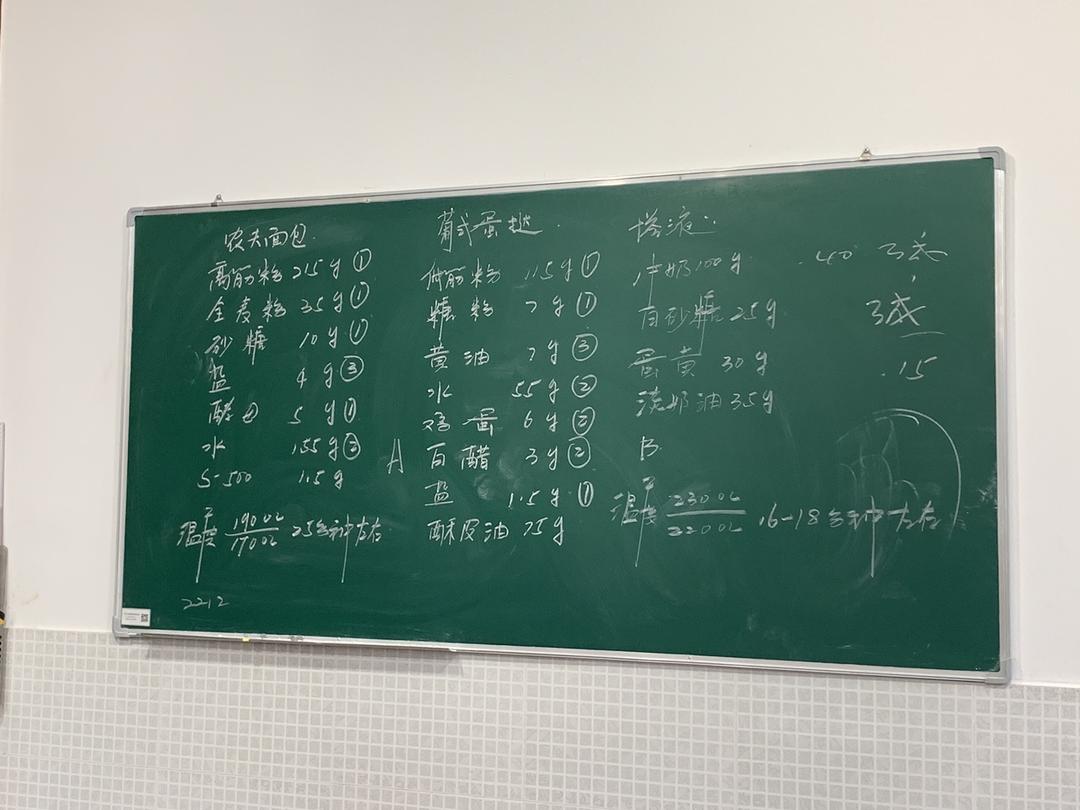 农夫面包
高筋粉 215g ①
全麦粉 35g ①
砂糖 10g ①
盐 4g ③
酵母 5g ①
水 155g ②
S-500 1.5g
温度 190℃/170℃ 25分钟左右
2212
葡式蛋挞
低筋粉 115g ①
糖粉 7g ①
黄油 7g ③
水 55g ②
鸡蛋 6g ②
A 百醋 3g ②
盐 1.5g ①
酥皮油 75g
塔液:
牛奶100g
白砂糖25g
蛋黄30g
淡奶油35g
B
温度 230℃/220℃ 16-18分钟左右
.40
减
.15